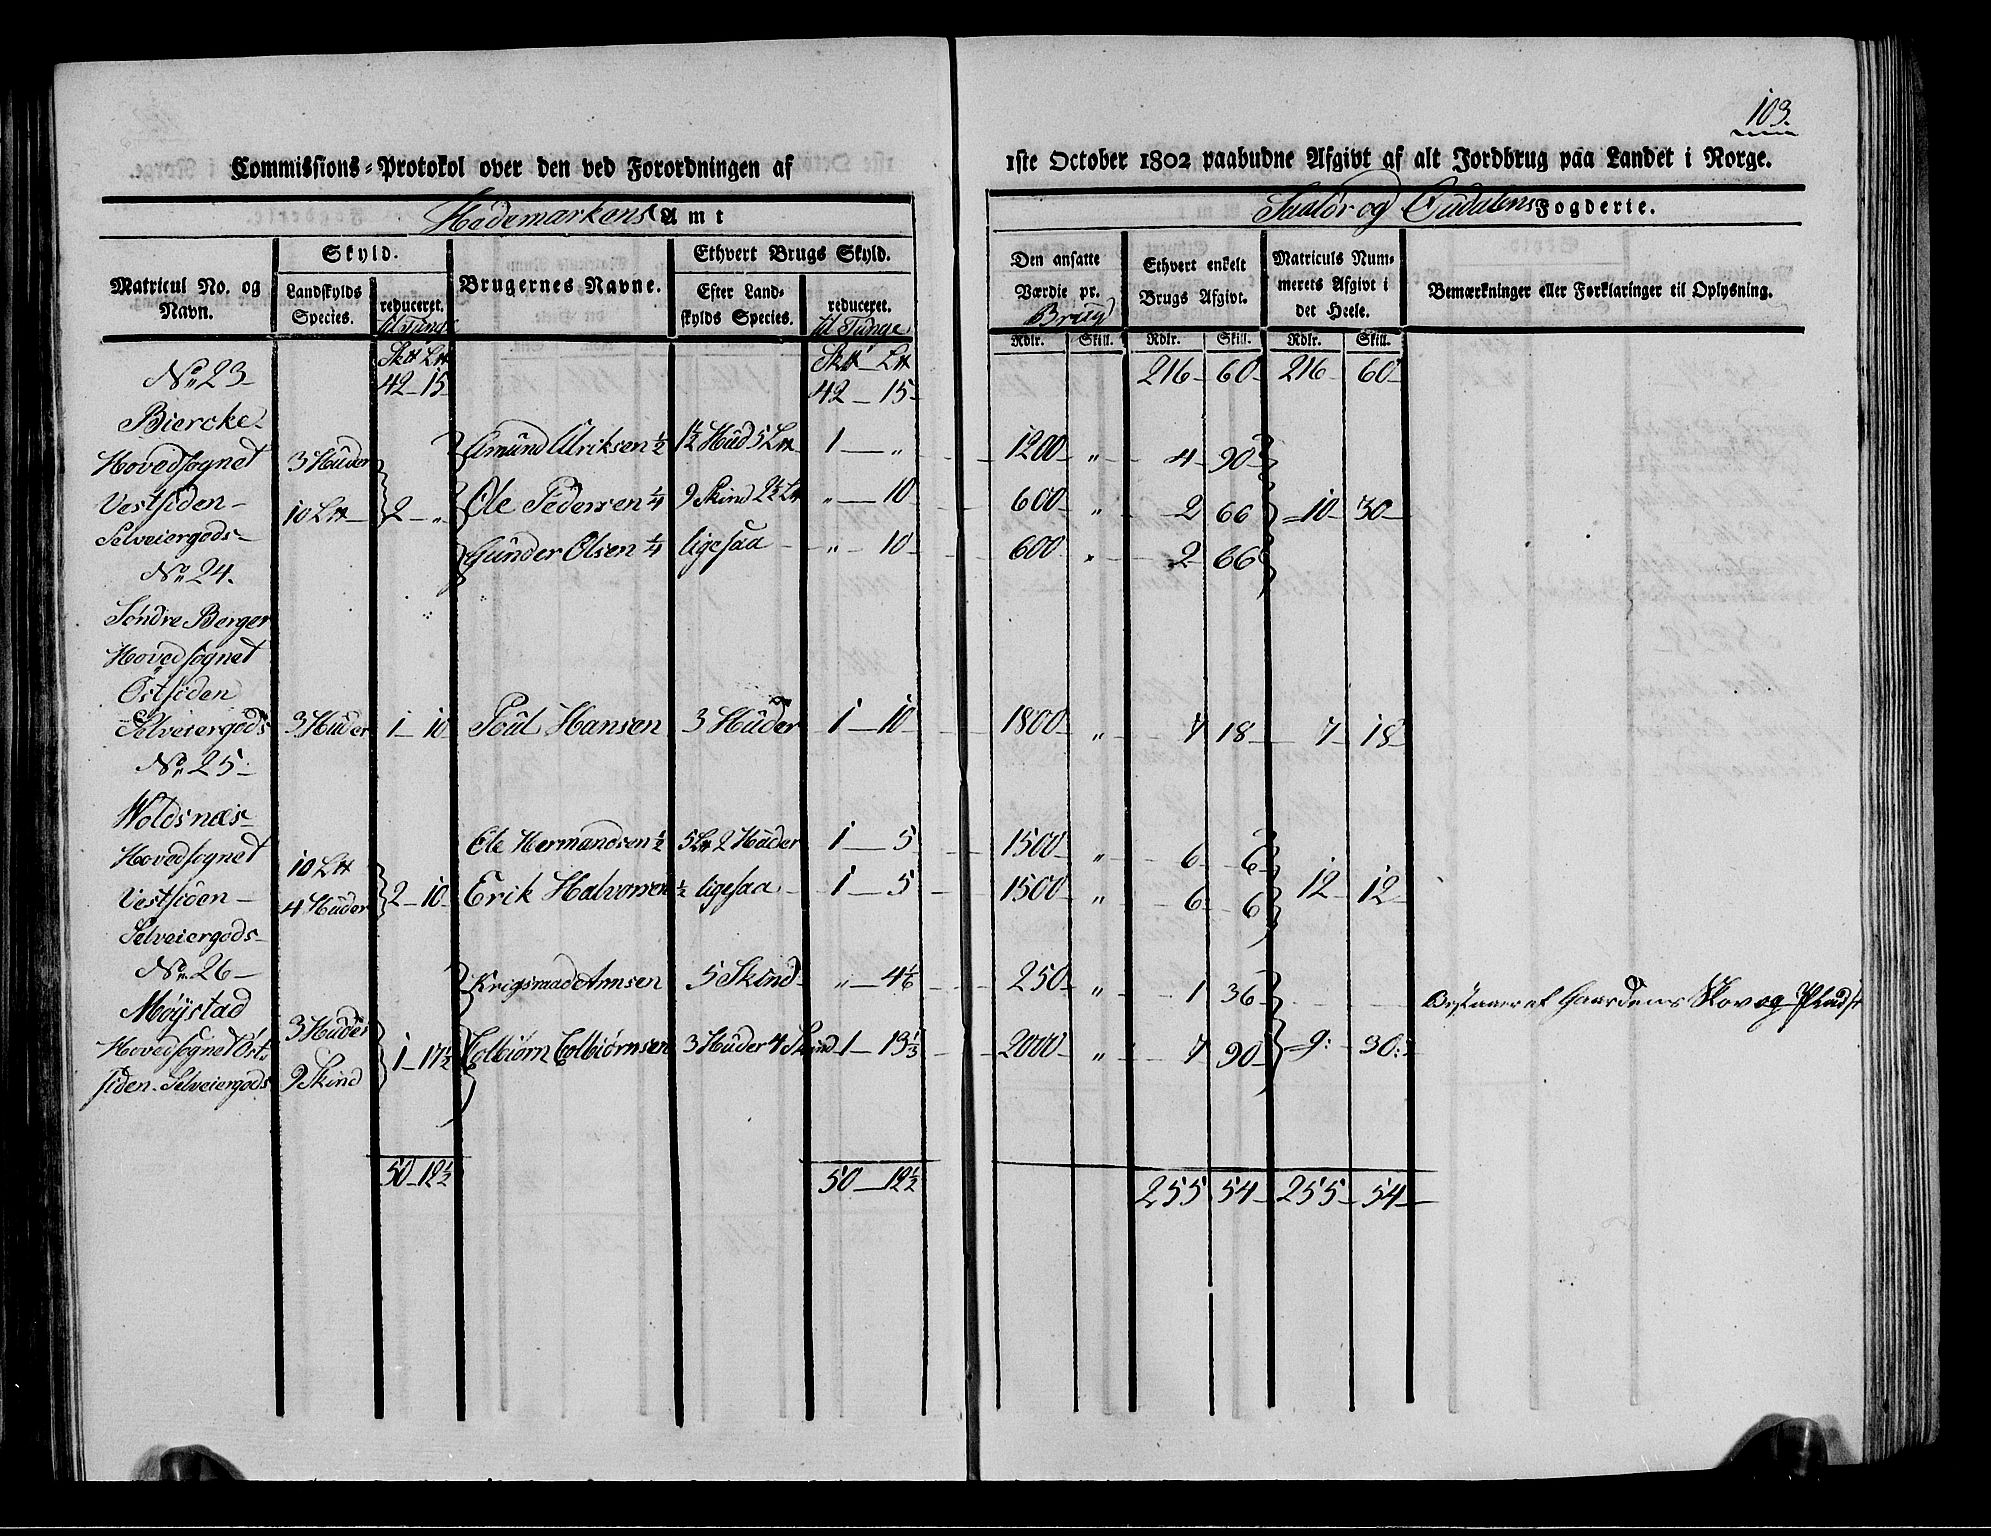 103.
Commissions-Protokol over den ved Forordningen af
1ste October 1802 paabudne Afgivt af alt Jordbrug paa Landet i Norge.
Hedemarkens Amt
Soelør og Oudalens Fogderie.
Matricul No. og Navn.
Skyld.
Landskylds Species.
reduceret.
til Tunge
Brugernes Navne.
Ethvert Brugs Skyld.
Efter Landskylds Species.
reduceret.
til Tunge
Den ansatte Værdie pr. Brug
Ethvert enkelt Brugs Afgivt.
Matriculs Nummerets Afgivt i det Heele.
Bemærkninger eller Forklaringer til Oplysning.
Rdlr. Skill. Rdlr. Skill. Rdlr. Skill.
No. 23 42 - 15 42 - 15 216 - 60 - 216 - 60
Biercke
Hovedsognet 3 Huder Amund Ulriksen ½ 1½ Hud 5 L℔ 1 - „ 1200 „ 4 90
Vestsiden 10 L℔ 2 - „ Ole Pedersen ¼ 9 Skind 2½ L℔ „ - 10 600 „ 2 66 10 - 30
Selveiergods Gunder Olsen ¼ ligesaa „ - 10 600 „ 2 66
No. 24.
Søndre Berger
Hovedsognet
Østsiden
Selveiergods 3 Huder 1 - 10 Poul Hansen 3 Huder 1 - 10 1800 „ 7 18 7 - 18
No. 25
Woldsnæs
Hovedsognet 10 L℔ Ole Hermandsen ½ 5 L℔ 2 Huder 1 - 5 1500 „ 6 6
Vestsiden 4 Huder 2 - 10 Erik Halvorsen ½ ligesaa 1 - 5 1500 „ 6 6 12 - 12
Selveiergods
No. 26 Krigsraad Arnsen 5 Skind „ - 4 1/6 250 „ 1 36 Bestaaer af Gaardens Skov og
Møystad 3 Huder
Hovedsognet Øst- 1 - 17½ Colbiørn Colbiørnsen 3 Huder 4 Skind 1 - 13⅓ 2000 „ 7 90 9: 30:
siden. Selveiergods 9 Skind
50 - 12½ 50 - 12½ 255 54 255 - 54